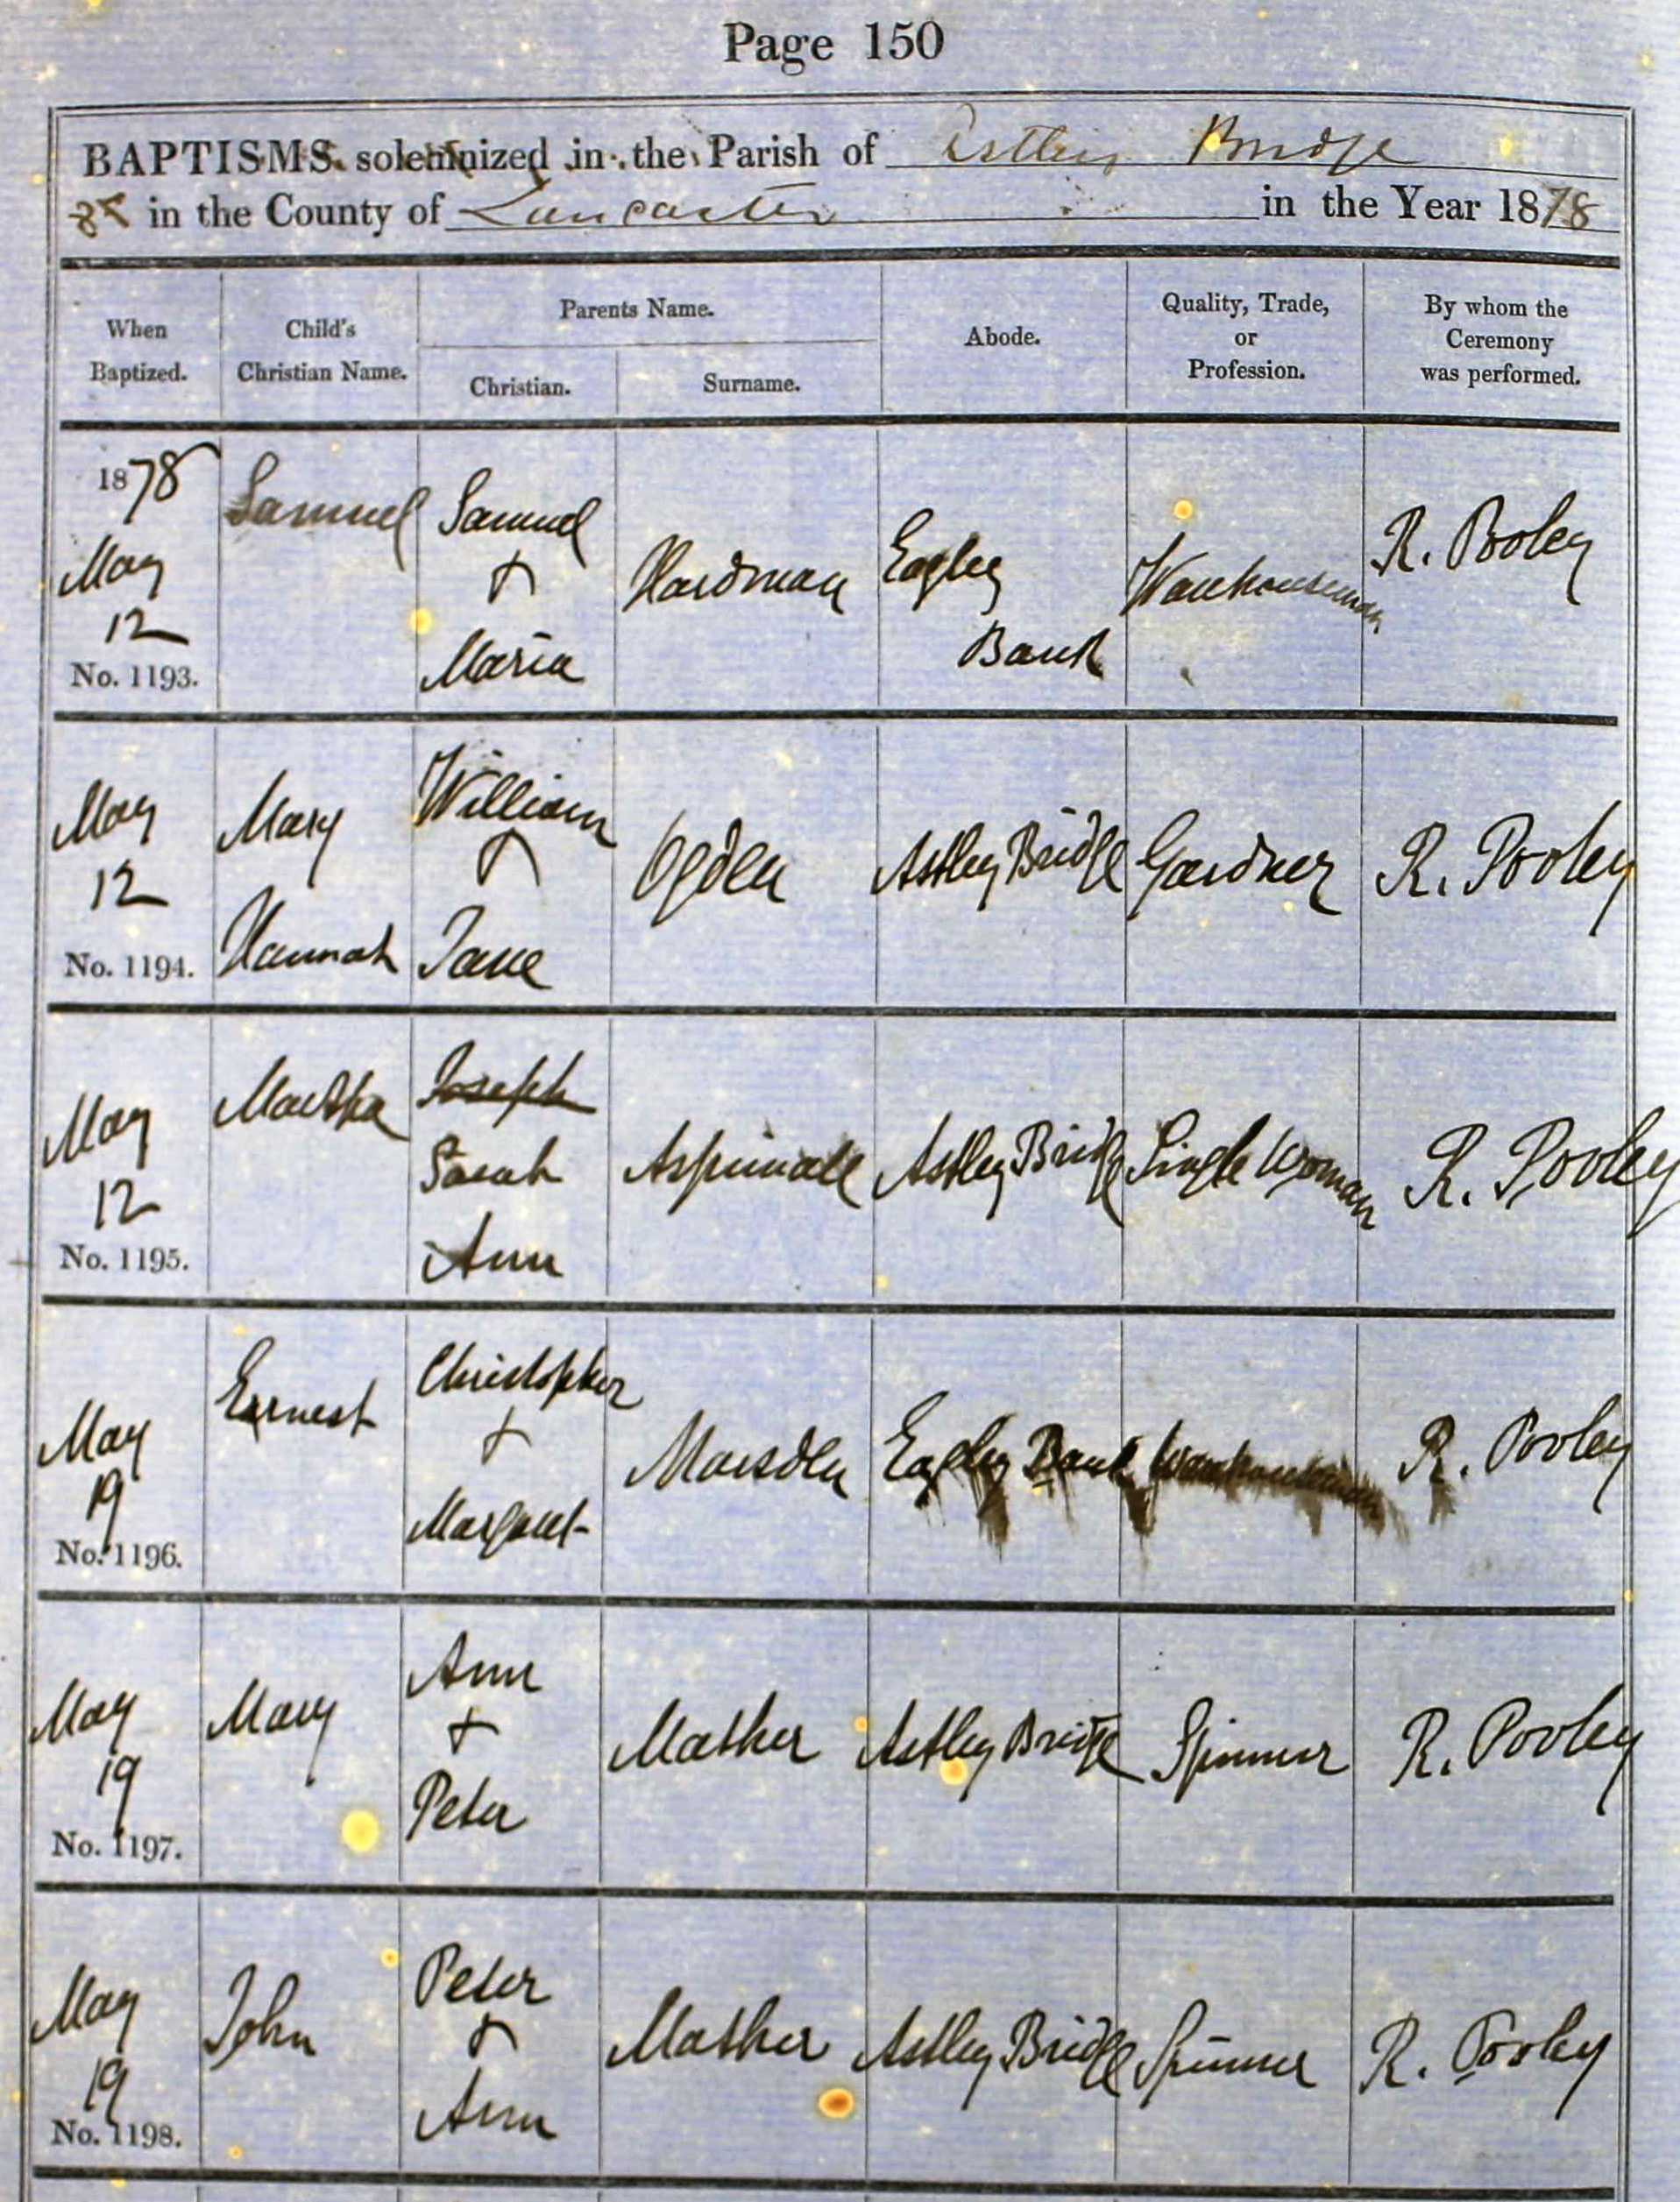 Page 150
BAPTISMS solemnized in the Parish of Astley Bridge
in the County of Lancaster in the Year 1878
When Baptized.
Child's Christian Name.
Parents Name.
Christian.
Surname.
Abode.
Quality, Trade, or Profession.
By whom the Ceremony was performed.
1878
May
12
No. 1193.
Samuel
Samuel
&
Maria
Hardman
Eagley
Bank
Warehouseman
R. Pooley
May
12
No. 1194.
Mary
Hannah
William
&
Jane
Ogden
Astley Bridge
Gardner
R. Pooley
May
12
No. 1195.
Martha
Joseph
Sarah
Ann
Aspinall
Astley Bridge
Single Woman
R. Pooley
May
19
No. 1196.
Earnest
Christopher
&
Margaret
Marsden
Eagley Bank
Warehouseman
R. Pooley
May
19
No. 1197.
Mary
Ann
&
Peter
Mather
Astley Bridge
Spinner
R. Pooley
May
19
No. 1198.
John
Peter
&
Ann
Mather
Astley Bridge
Spinner
R. Pooley